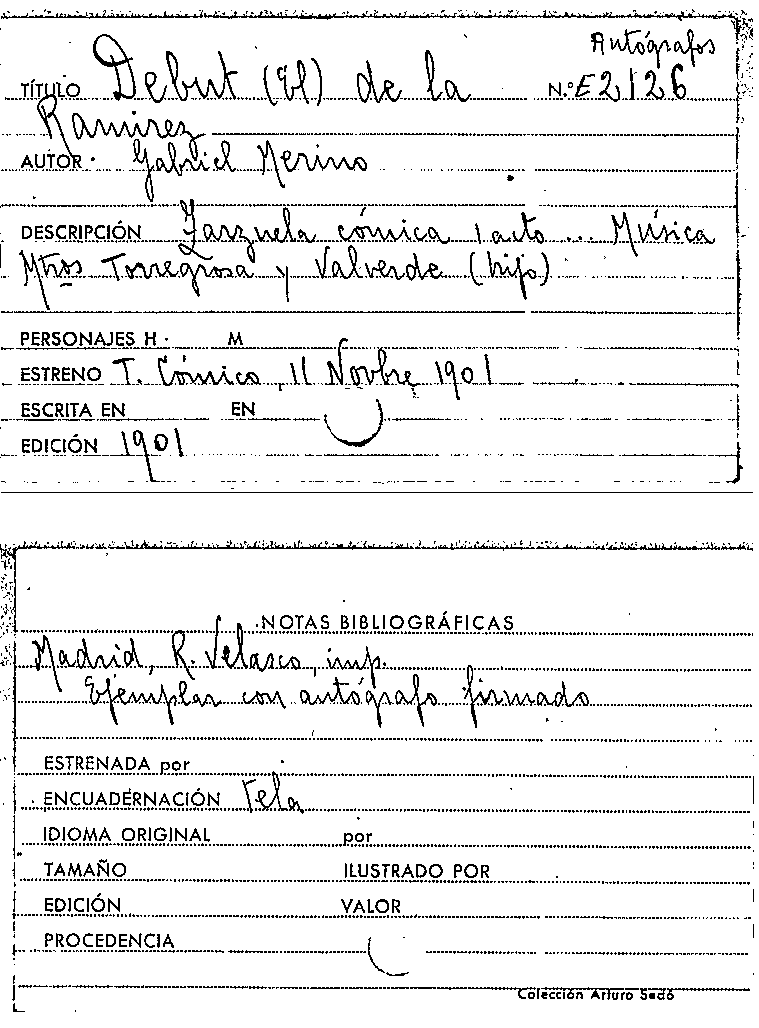 Autógrafos
TÍTULO Debut (El) de la N.º E 2126
Ramirez
AUTOR Gabriel Merino
DESCRIPCIÓN Zarzuela cómica 1 acto ... Música
Mtros Torregrosa y Valverde (hijo)
PERSONAJES H M
ESTRENO T. Cómico, 11 Novbre 1901
ESCRITA EN EN
EDICIÓN 1901
NOTAS BIBLIOGRÁFICAS
Madrid, R. Velasco, imp.
Ejemplar con autógrafo firmado
ESTRENADA por
ENCUADERNACIÓN Tela
IDIOMA ORIGINAL por
TAMAÑO ILUSTRADO POR
EDICIÓN VALOR
PROCEDENCIA
Colección Arturo Sedó